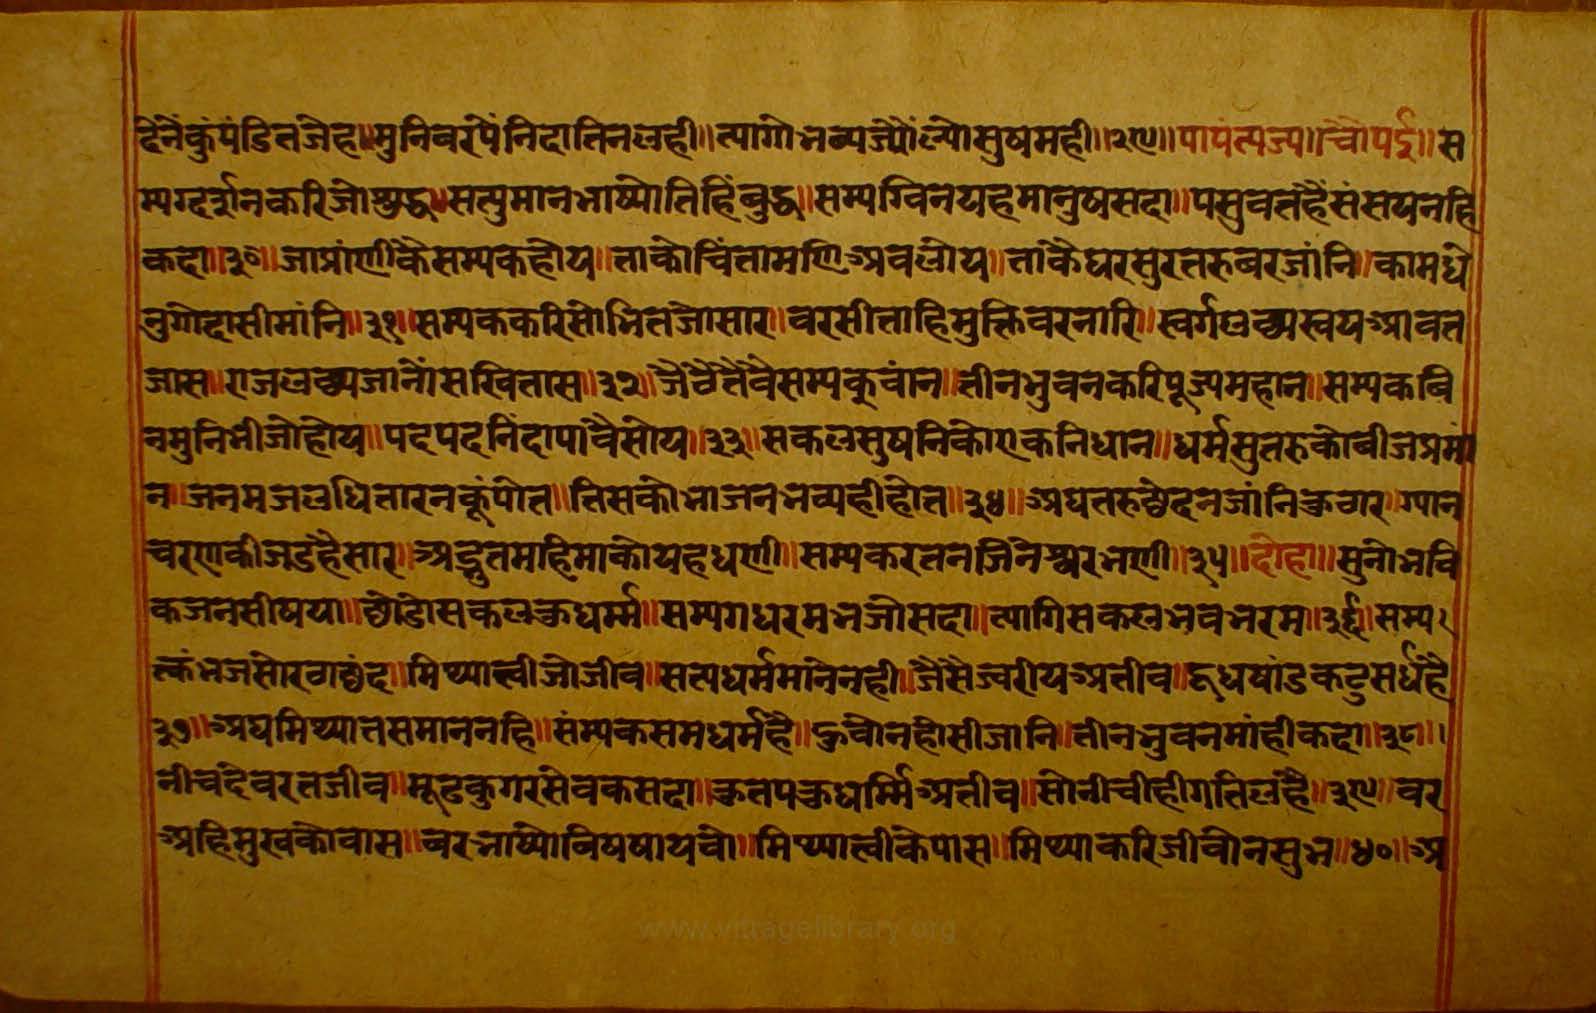 देनेंकुंपंडितजेह॥मुनिवरपेंनिदातिनलही॥त्यागोभव्यज्यौंल्योसुषमही॥२९॥पापंत्यज्य॥चौपई॥स
म्यग्दर्शनकरिजोशुद्ध॥सत्पुमानभाष्योतिहिंबुद्ध॥सम्यग्विनयहमानुषसदा॥पसुवतहैंसंसयनहि
कदा॥३०॥जाप्रांणीकैसम्यकहोय॥ताकोचिंतामणिअवलोय॥तांकैघरसुरतरुवरजांनि॥कामधे
नुगोदासीमांनि॥३१॥सम्यककरिसोभितजोसार॥वरसीताहिमुक्तिवरनारि॥स्वर्गलछ्यस्वयआवत
जास॥राजलछ्यजानोंसखितास॥३२॥जैवैतैवैसम्यकुवांन॥तीनभुवनकरिपूज्यमहान॥सम्यकवि
नमुनिभीजोहोय॥पदपदनिंदापांवैसोय॥३३॥सकलसुषनिकोएकनिधान॥धर्मसुतरुकोवीजप्रमां
न॥जनमजलधितारनकूंपोत॥तिसकोभाजनभव्यहीहोत॥३४॥अघतरुछेदनजांनिकुठार॥ग्यान
चरणकीजडहैसार॥अद्भुतमहिमाकोयहधणी॥सम्यकरतनजिनेश्वरभणी॥३५॥दोहा॥सुनोभवि
कजनसीषया॥छोडोसकलकुधर्म्म॥सम्यगधरमभजोसदा॥त्यागिसकलभवभरम॥३६॥सम्य
त्कंभजसोरठाछंद॥मिथ्यात्वीजोजीव॥सत्यधर्ममानेनही॥जैसैज्वरीयअतीव॥दूधषांडकटुसर्धहै
३७॥अघमिथ्यातसमाननहि॥संम्यकसमधर्महै॥हुवोनहीसीजानि॥तीनभुवनमांहीकदा॥३८॥
नीचदेवरतजीव॥मूढकुगरसेवकसदा॥कुतपकुधर्म्मिअतीव॥सोनीचीहीगतिलहै॥३९॥वर
अहिमुखकोवास॥वरभाष्योविषषायवो॥मिथ्यात्वीकेपास॥मिथ्याकरिजीवोनसुभ॥४०॥अ
www.vitragelibrary.org